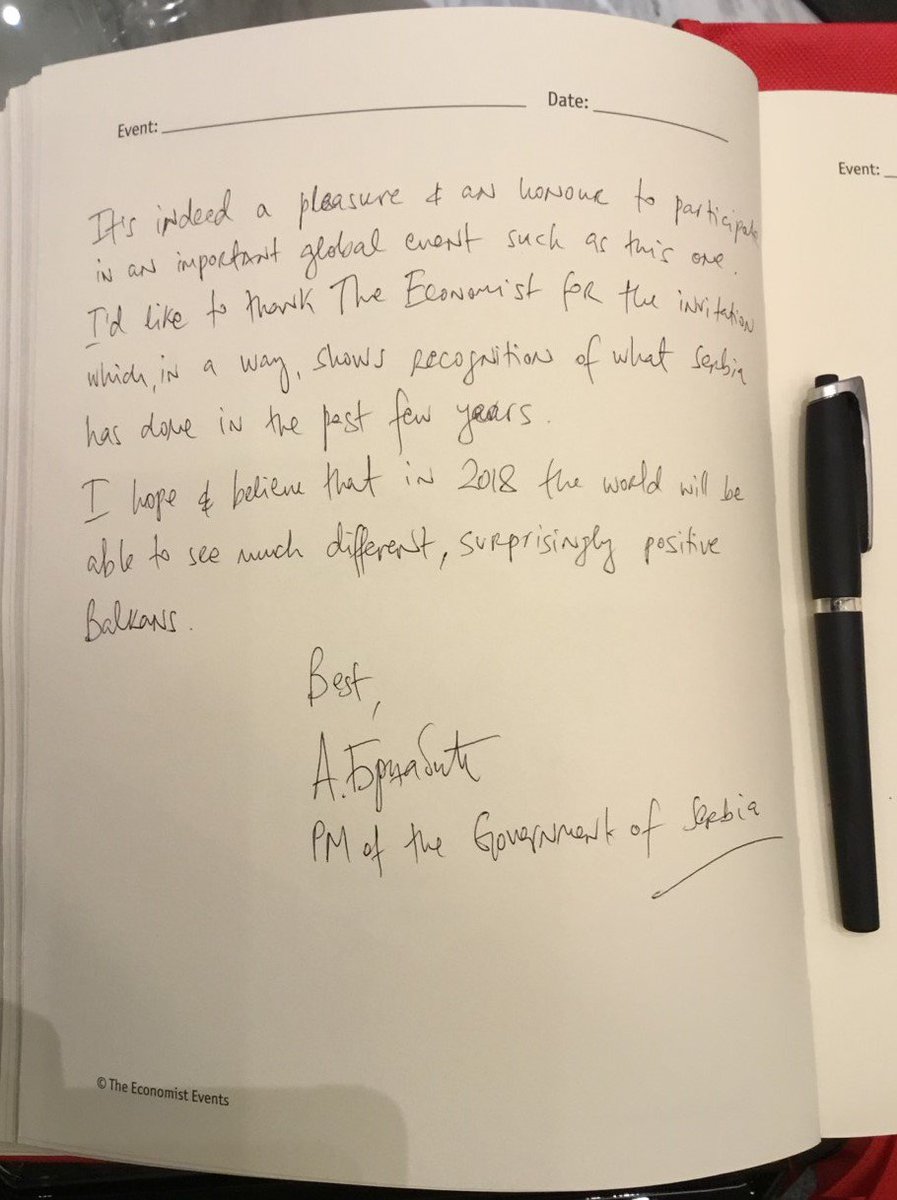 Event: Date:
It's indeed a pleasure & an honour to participate
in an important global event such as this one.
I'd like to thank The Economist for the invitation
which, in a way, shows recognition of what Serbia
has done in the past few years.
I hope & believe that in 2018 the world will be
able to see much different, surprisingly positive
Balkans.
Best,
А. Брнабић
PM of the Government of Serbia
© The Economist Events
Event: